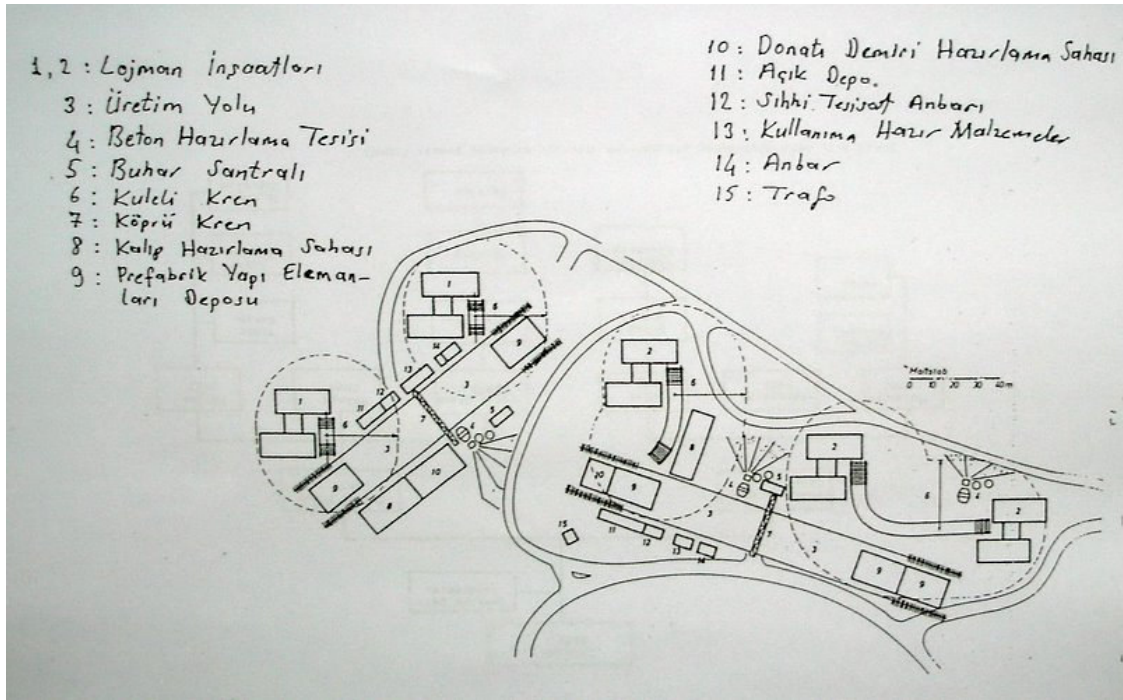 1,2 : Lojman İnşaatları
3 : Üretim Yolu
4 : Beton Hazırlama Tesisi
5 : Buhar Santralı
6 : Kuleli Kren
7 : Köprü Kren
8 : Kalıp Hazırlama Sahası
9 : Prefabrik Yapı Eleman-
ları Deposu
10 : Donatı Demiri Hazırlama Sahası
11 : Açık Depo.
12 : Sıhhi Tesisat Anbarı
13 : Kullanıma Hazır Malzemeler
14 : Anbar
15 : Trafo
1
6
14
9
13
3
12
11
7
4
5
1
6
3
10
9
8
2
6
8
10
9
4
5
3
11
12
13
14
15
7
3
2
6
4
2
9
9
Maßstab
0 10 20 30 40m